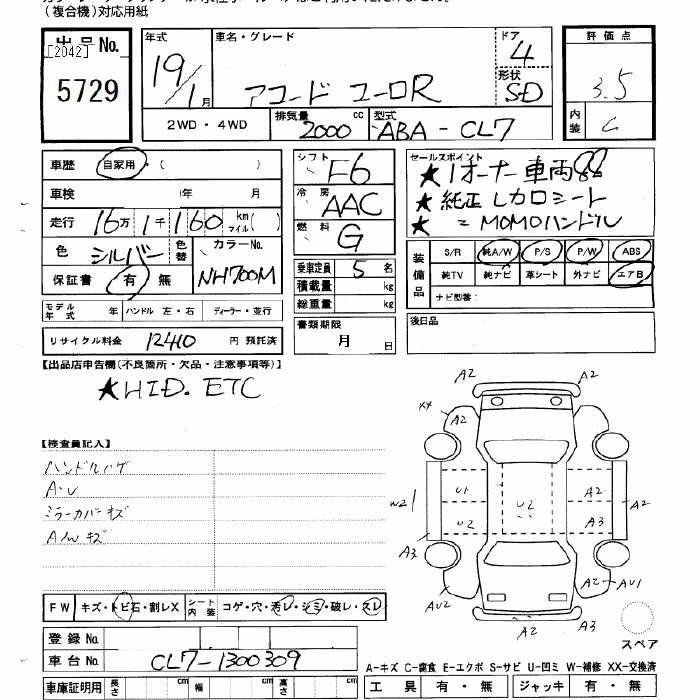 (複合機)対応用紙
出品No.
[2042]
5729
年式
19/1月
車名・グレード
アコード ユーロR
ドア
4
形状
SD
評価点
3.5
内装
C
2WD・4WD
排気量
2000 cc
型式
ABA-CL7
車歴
自家用・( )
車検
年 月 日
走行
16万 1千 160 km マイル( )
色
シルバー
色替
カラーNo.
NH700M
保証書
有・無
モデル年式
年
ハンドル 左・右
ディーラー・並行
リサイクル料金 12410 円 預託済
シフト
F6
冷房
AAC
燃料
G
乗車定員 5 名
積載量 kg
総重量 kg
書類期限
月 日
セールスポイント
★1オーナー車両
★純正レカロシート
★ = MOMOハンドル
装備品
S/R 純A/W P/S P/W ABS
純TV 純ナビ 革シート 外ナビ エアB
ナビ型番:
後日品
【出品店申告欄(不良箇所・欠品・注意事項等)】
★HID. ETC
【検査員記入】
ハンドルハゲ
A・U
ミラーカバーキズ
A/Wキズ
A2
A2
XX
A2
W2
U1
U2
U2
A2
A3
A2
A3
A3
AU2
A2
AU1
A2
A2
スペア
FW キズ・トビ石・割レX
シート内装 コゲ・穴・汚レ・シミ・破レ・スレ
登録No.
車台No. CL7-1300309
車庫証明用 長さ cm 幅 cm 高さ cm
A-キズ C-腐食 E-エクボ S-サビ U-凹ミ W-補修 XX-交換済
工具 有・無 ジャッキ 有・無